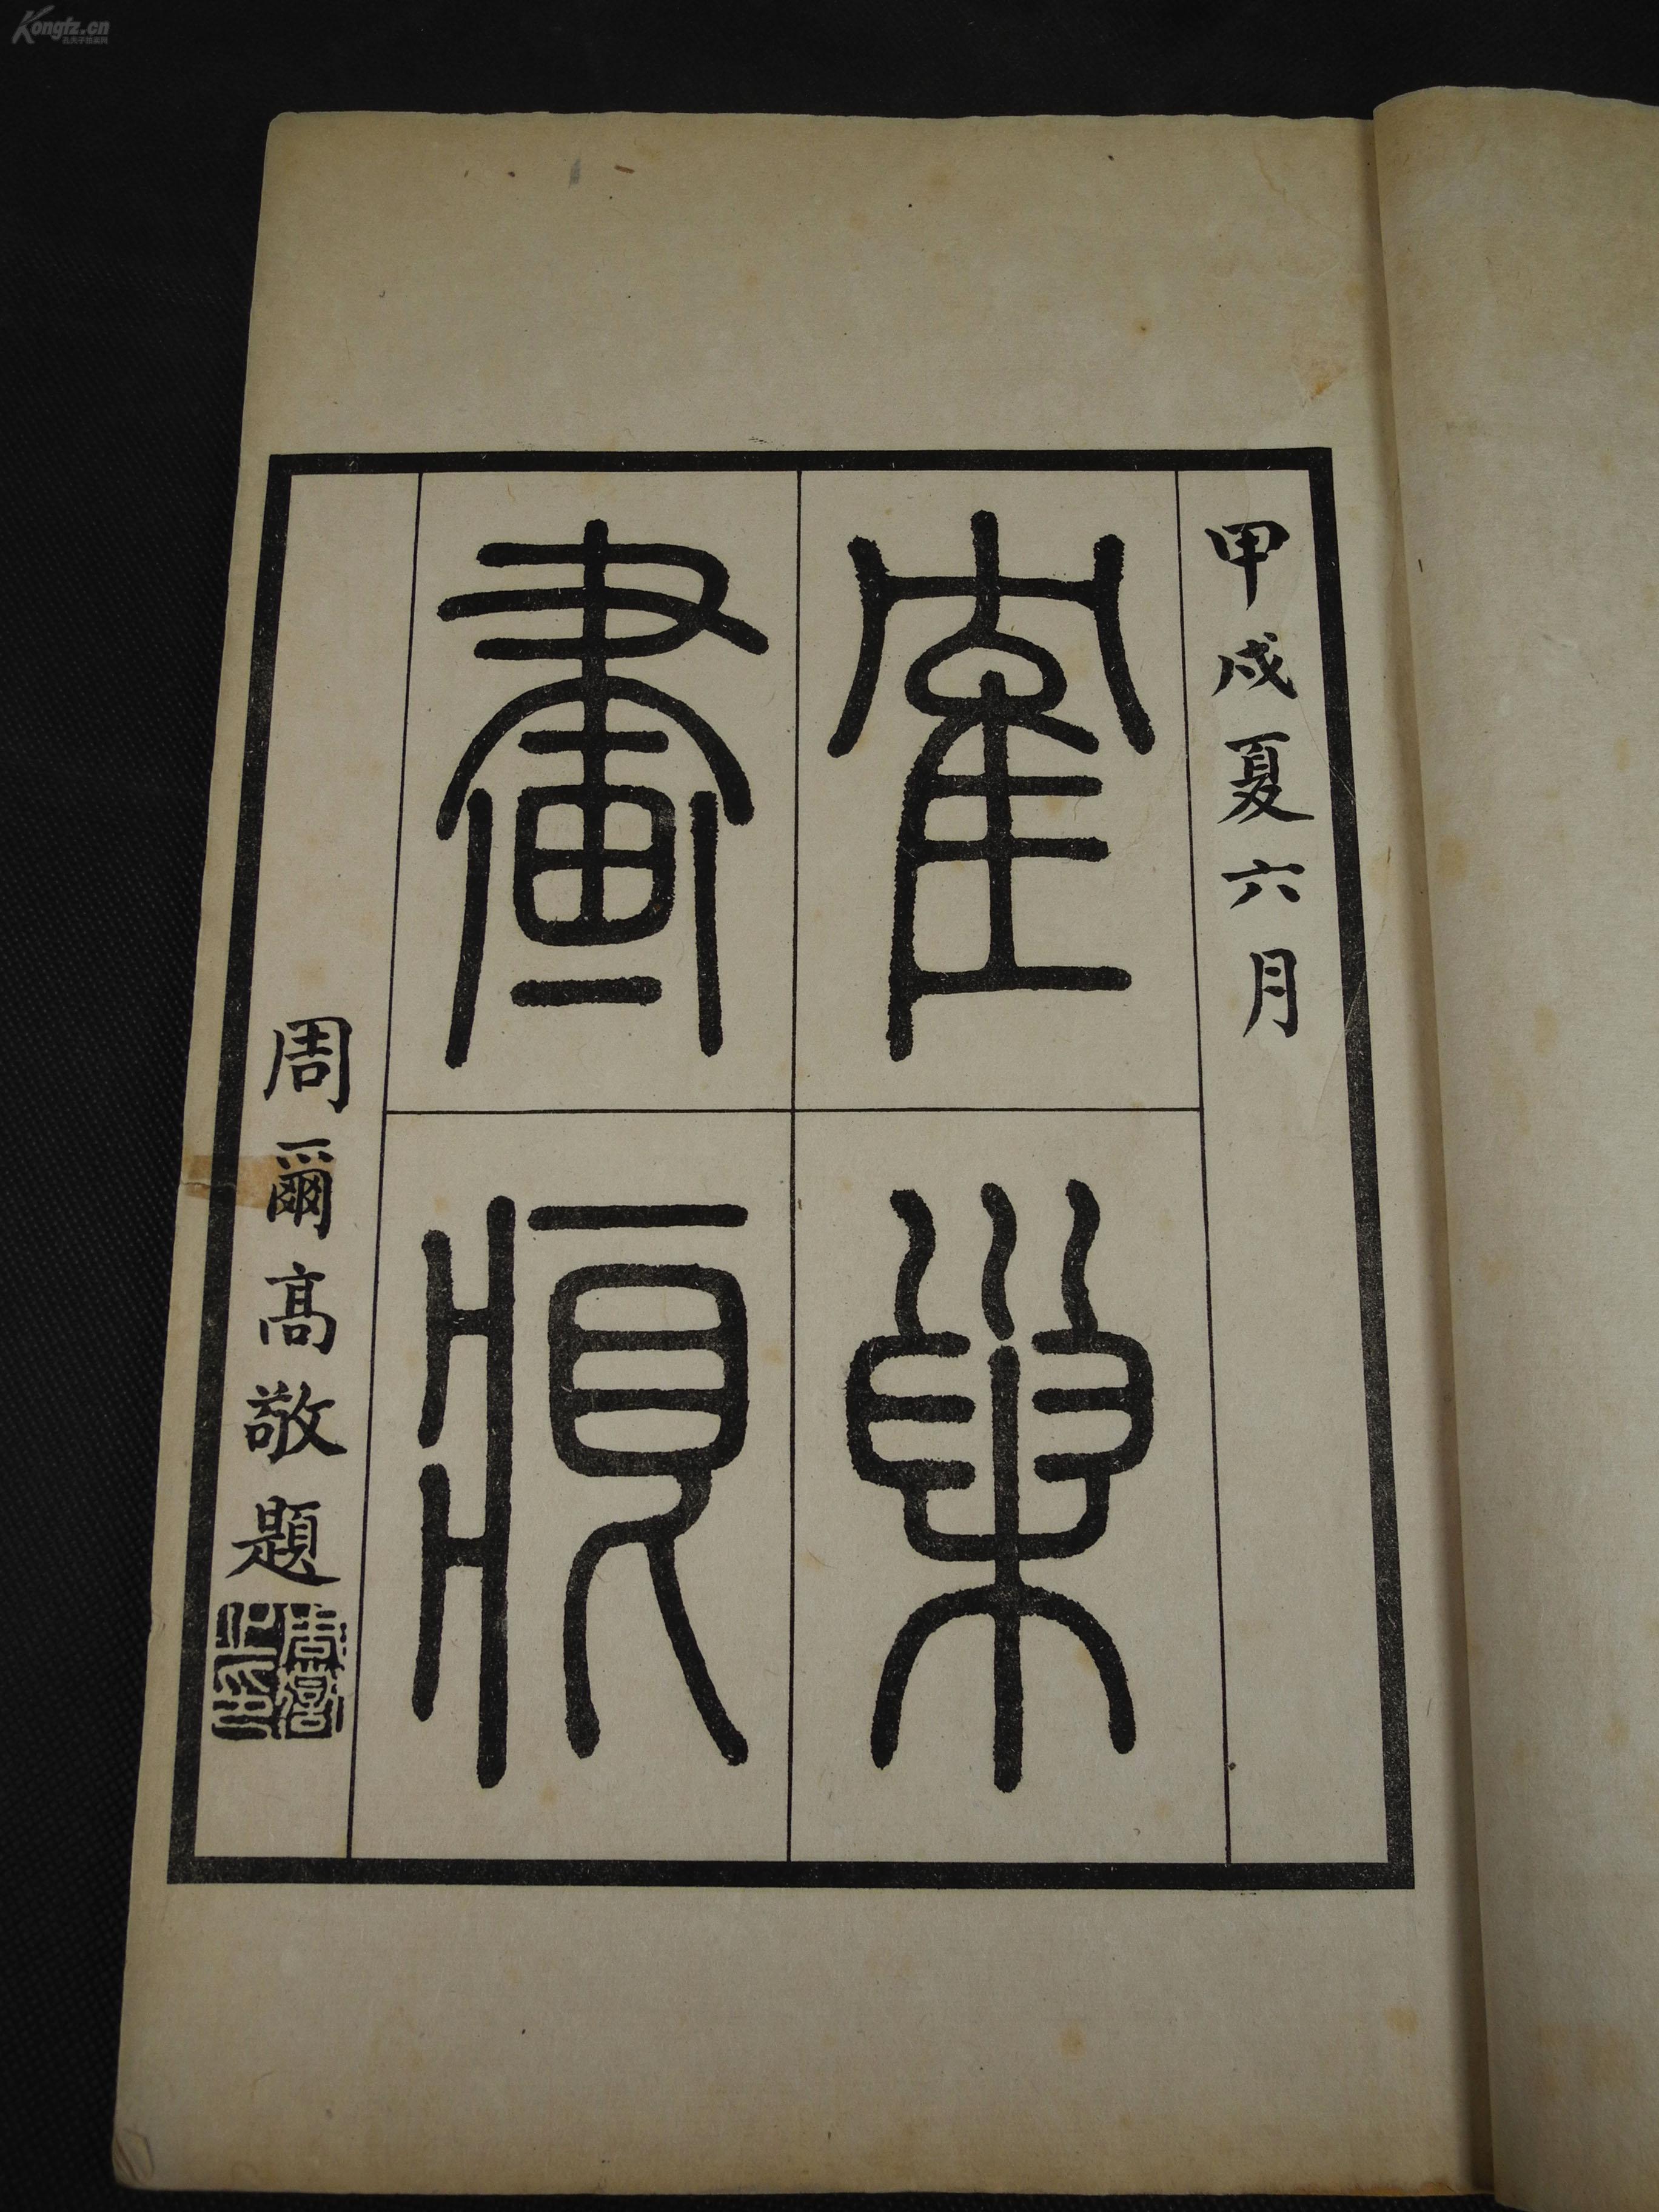 甲戌夏六月
隺巢
畫痕
周爾高敬題
Kongfz.cn